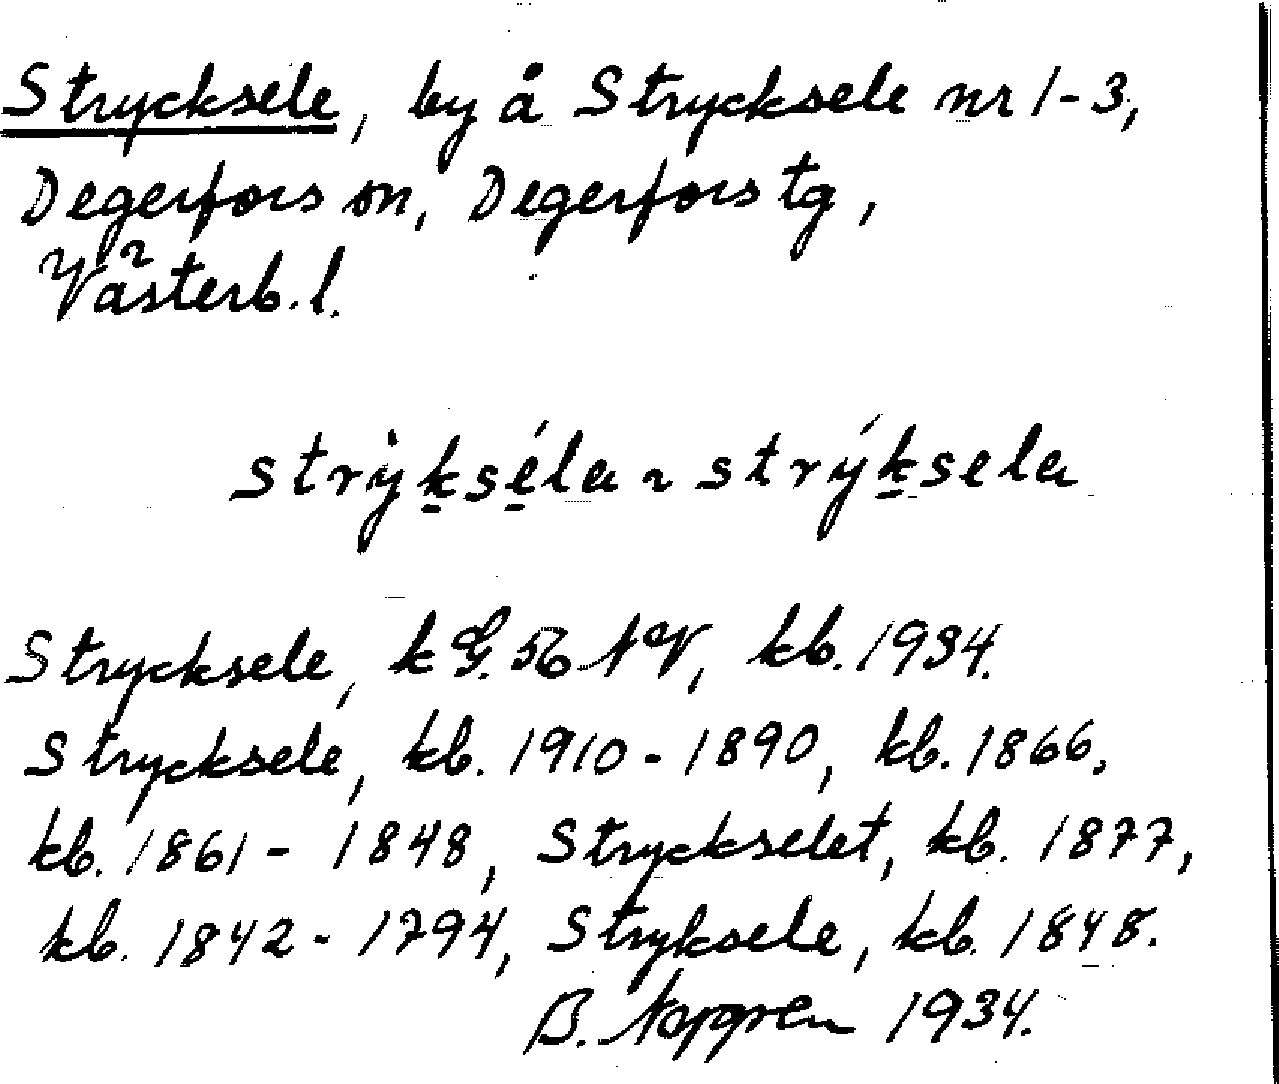 Strycksele, by å Strycksele nr 1-3,
Degerfors sn, Degerfors tg,
Västerb. l.
strỳkséla ~ strýksela
Strycksele, k G. 56 NV, kb. 1934.
Strycksele, kb. 1910-1890, kb. 1866,
kb. 1861-1848, Stryckselet, kb. 1877,
kb. 1842-1794, Stryksele, kb. 1848.
B. 1934.